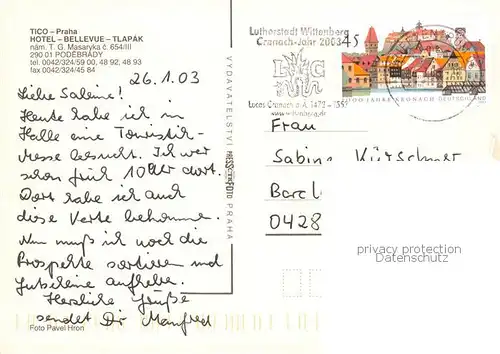 TICO – Praha
HOTEL – BELLEVUE – TLAPÁK
nám. T. G. Masaryka č. 654/III
290 01 PODĚBRADY
tel. 0042/324/59 00, 48 92, 48 93
fax 0042/324/45 84
26.1.03
Liebe Sabine!
Heute habe ich in
Halle eine Touristik-
Messe besucht. Ich war
schon früh 10 Uhr dort.
Dort habe ich auch
diese Karte bekommen.
Nun muß ich noch die
Prospekte sortieren und
aufheben.
Herzliche Grüße
sendet Dir Manfred
Foto Pavel Hron
VYDAVATELSTVÍ PRAHA
Lutherstadt Wittenberg
Cranach-Jahr 2003
Lucas Cranach d.Ä. 1472 – 1553
45
1000 JAHRE KRONACH DEUTSCHLAND
Frau
Sabine Kürschner
Barcl
0428
privacy protection
Datenschutz